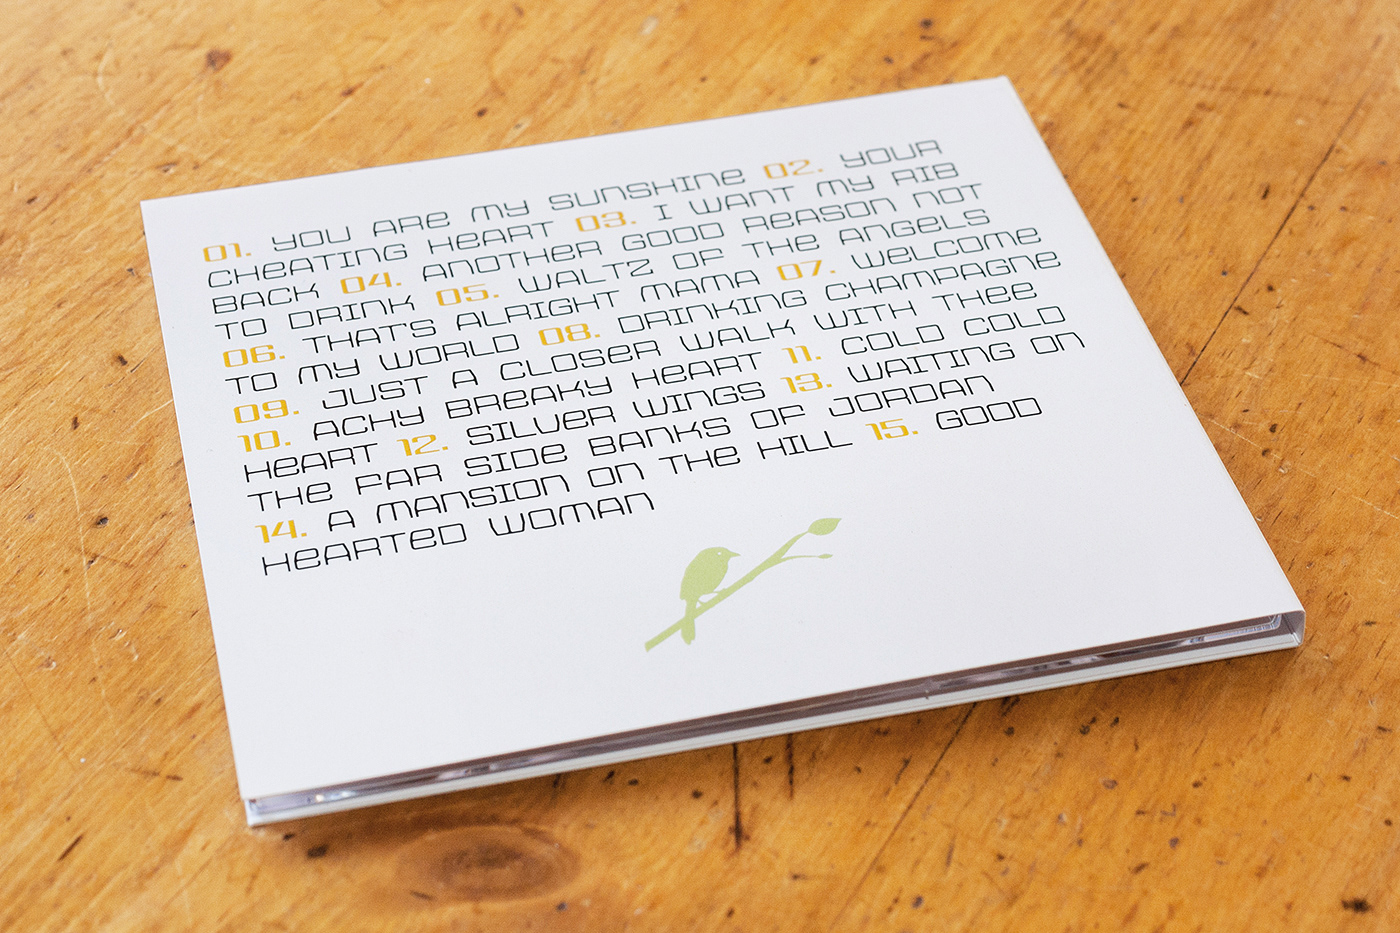 01. YOU ARE MY SUNSHINE 02. YOUR
CHEATING HEART 03. I WANT MY RIB
BACK 04. ANOTHER GOOD REASON NOT
TO DRINK 05. WALTZ OF THE ANGELS
06. THAT'S ALRIGHT MAMA 07. WELCOME
TO MY WORLD 08. DRINKING CHAMPAGNE
09. JUST A CLOSER WALK WITH THEE
10. ACHY BREAKY HEART 11. COLD COLD
HEART 12. SILVER WINGS 13. WAITING ON
THE FAR SIDE BANKS OF JORDAN
14. A MANSION ON THE HILL 15. GOOD
HEARTED WOMAN